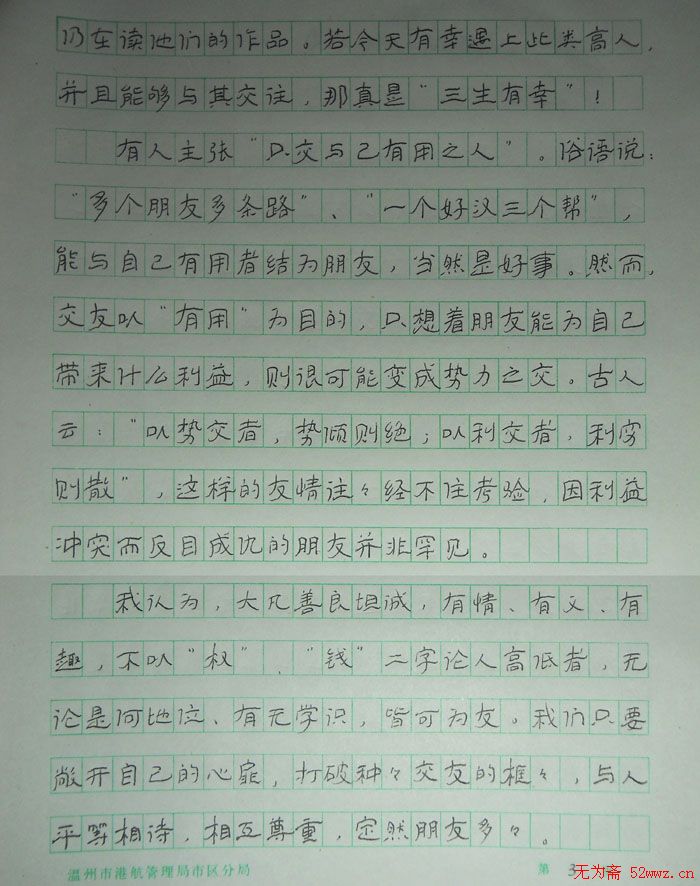 仍在读他们的作品。若今天有幸遇上此类高人，
并且能够与其交往，那真是“三生有幸”！
有人主张“只交与己有用之人”。俗语说：
“多个朋友多条路”、“一个好汉三个帮”，
能与自己有用者结为朋友，当然是好事。然而，
交友以“有用”为目的，只想着朋友能为自己
带来什么利益，则很可能变成势力之交。古人
云：“以势交者，势倾则绝；以利交者，利穷
则散”，这样的友情往々经不住考验，因利益
冲突而反目成仇的朋友并非罕见。
我认为，大凡善良坦诚，有情、有义、有
趣，不以“权”、“钱”二字论人高低者，无
论是何地位、有无学识，皆可为友。我们只要
敞开自己的心扉，打破种々交友的框々，与人
平等相待，相互尊重，定然朋友多々。
温州市港航管理局市区分局
第 3
无为斋 52wwz.cn